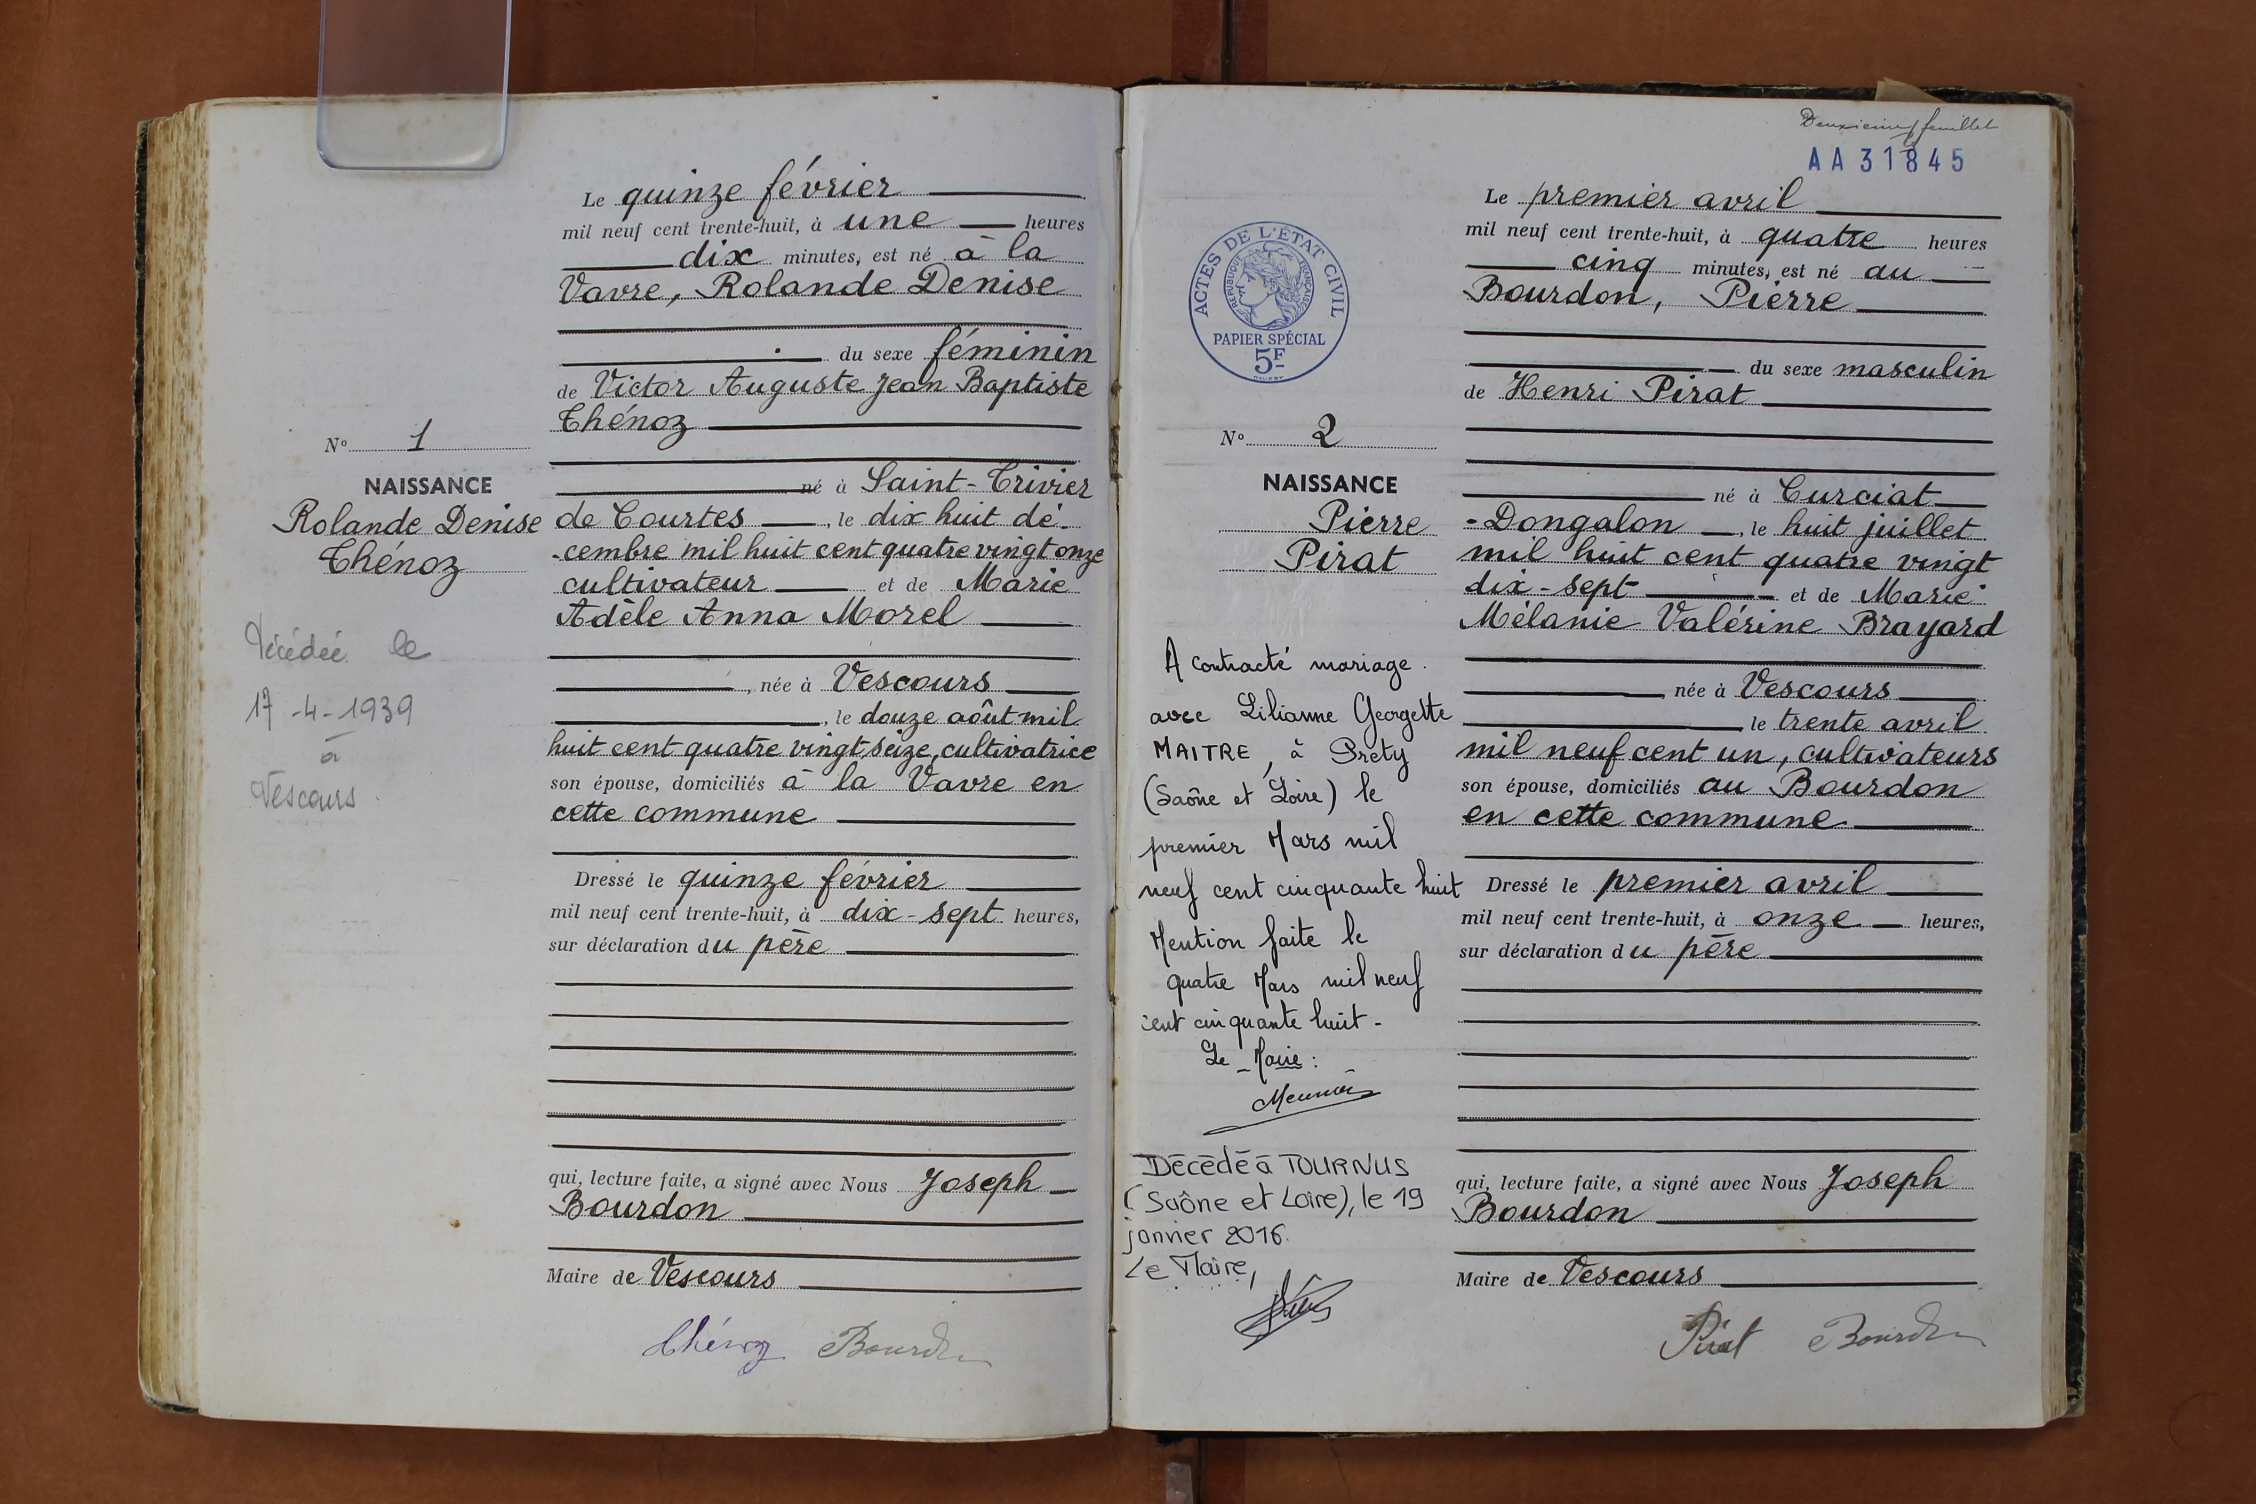 Le quinze février
mil neuf cent trente-huit, à une heures
dix minutes, est né à la
Vavre, Rolande Denise
du sexe féminin
de Victor Auguste Jean Baptiste
Thénoz
né à Saint-Trivier
de Courtes, le dix huit dé-
-cembre mil huit cent quatre vingt onze
cultivateur et de Marie
Adèle Anna Morel
, née à Vescours
, le douze août mil
huit cent quatre vingt seize, cultivatrice
son épouse, domiciliés à la Vavre en
cette commune
Dressé le quinze février
mil neuf cent trente-huit, à dix-sept heures,
sur déclaration du père
qui, lecture faite, a signé avec Nous Joseph
Bourdon
Maire de Vescours
Thénoz Bourdon
N° 1
NAISSANCE
Rolande Denise
Thénoz
Décédée le
17-4-1939
à
Vescours.
Deuxième feuillet
AA 31845
Le premier avril
mil neuf cent trente-huit, à quatre heures
cinq minutes, est né au
Bourdon, Pierre
du sexe masculin
de Henri Pirat
né à Curciat
-Dongalon, le huit juillet
mil huit cent quatre vingt
dix-sept et de Marie
Mélanie Valérine Brayard
née à Vescours
le trente avril
mil neuf cent un, cultivateurs
son épouse, domiciliés au Bourdon
en cette commune
Dressé le premier avril
mil neuf cent trente-huit, à onze heures,
sur déclaration du père
qui, lecture faite, a signé avec Nous Joseph
Bourdon
Maire de Vescours
Pirat Bourdon
ACTES DE L'ÉTAT CIVIL
RÉPUBLIQUE FRANÇAISE
PAPIER SPÉCIAL
5F
N° 2
NAISSANCE
Pierre
Pirat
A contracté mariage
avec Lilianne Georgette
MAITRE, à Préty
(Saône et Loire) le
premier Mars mil
neuf cent cinquante huit
Mention faite le
quatre Mars mil neuf
cent cinquante huit-
Le Maire :
Meunier
Décédé à TOURNUS
(Saône et Loire), le 19
janvier 2016.
Le Maire,